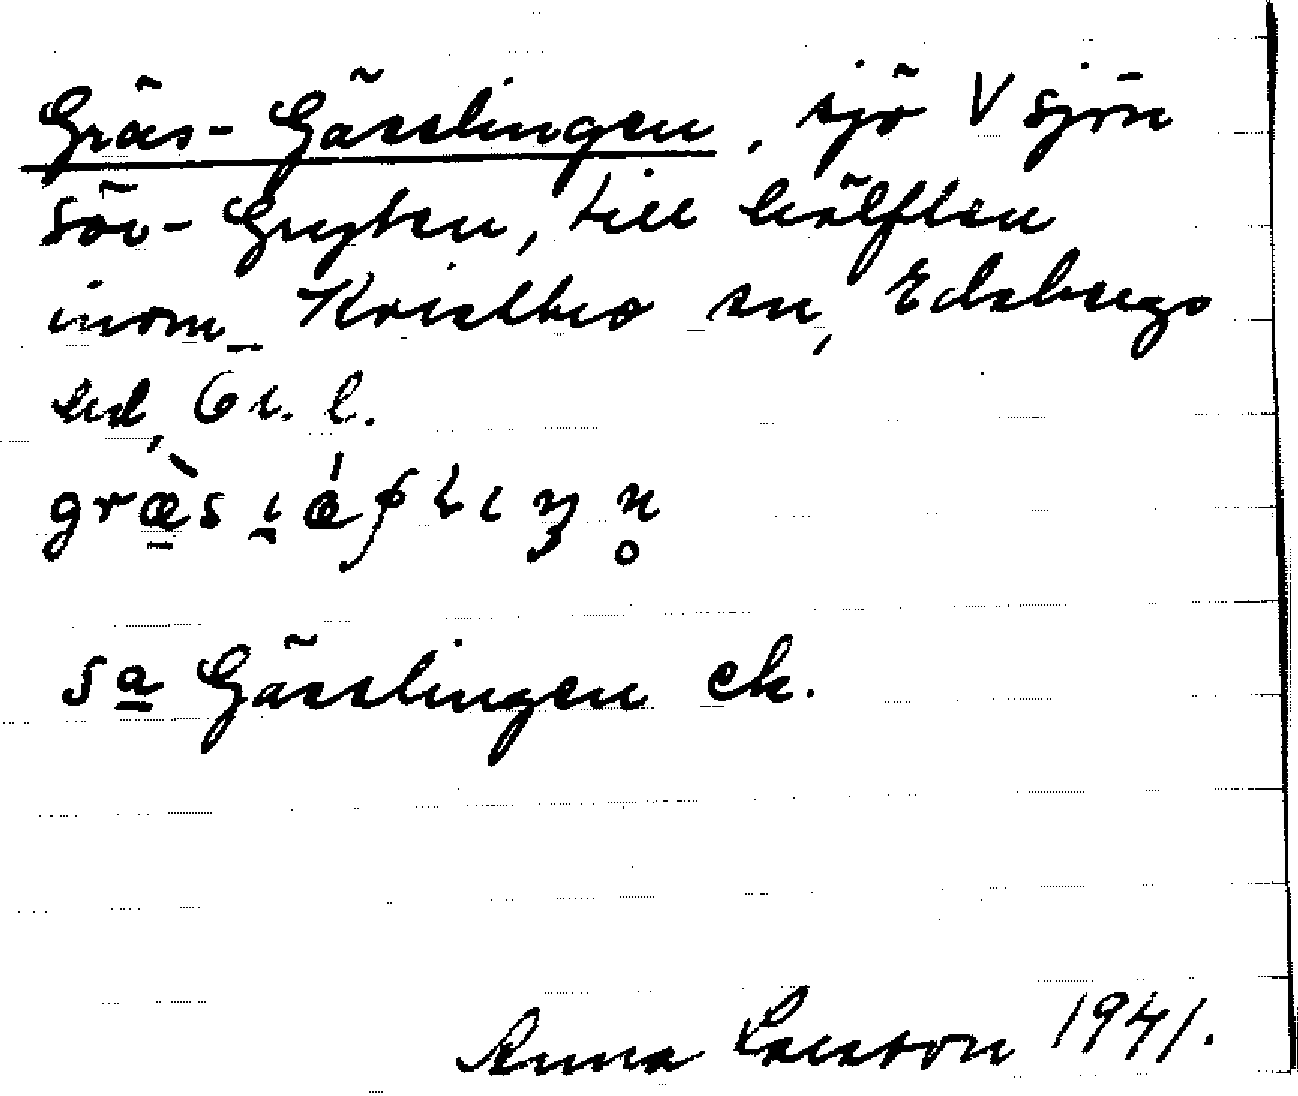 Gräs-Gässlingen, sjö V sjön
Söv-Gryten, till hälften
inom Kvistbro sn, Edsbergs
hd, Ör. l.
sa Gässlingen ck.
Anna Larsson 1941.